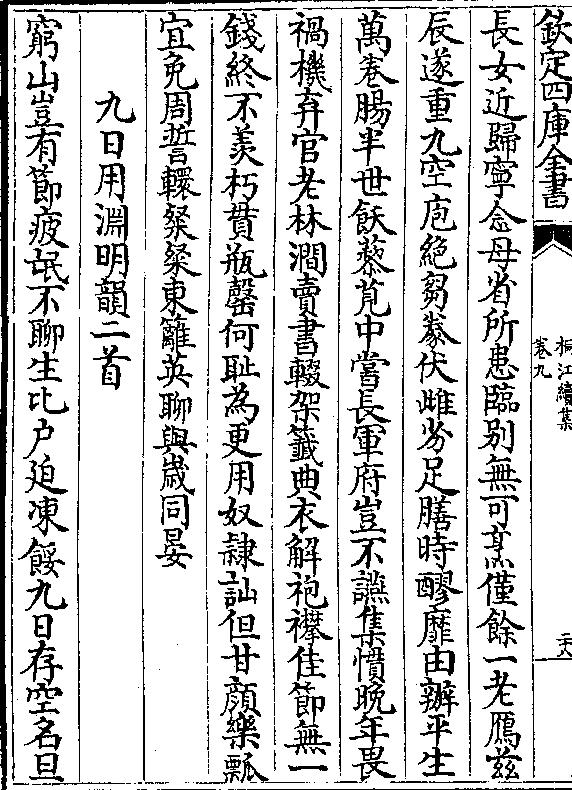 欽定四庫全書
桐江續集
卷九
二十八
長女近歸寧念母省所患臨别無可烹僅餘一老鴈兹
辰遂重九空庖絶芻豢伏雌劣足膳時醪靡由辦平生
萬卷腸半世飫藜莧中嘗長軍府豈不讌集慣晚年畏
禍機弃官老林澗賣書輟架籤典衣解袍襻佳節無一
錢終不羨朽貫瓶罄何耻為更用奴隷訕但甘顔樂瓢
宜免周誓轘粲粲東籬英聊與嵗同晏
九日用淵明韻二首
窮山豈有節疲氓不聊生比户廹凍餒九日存空名旦